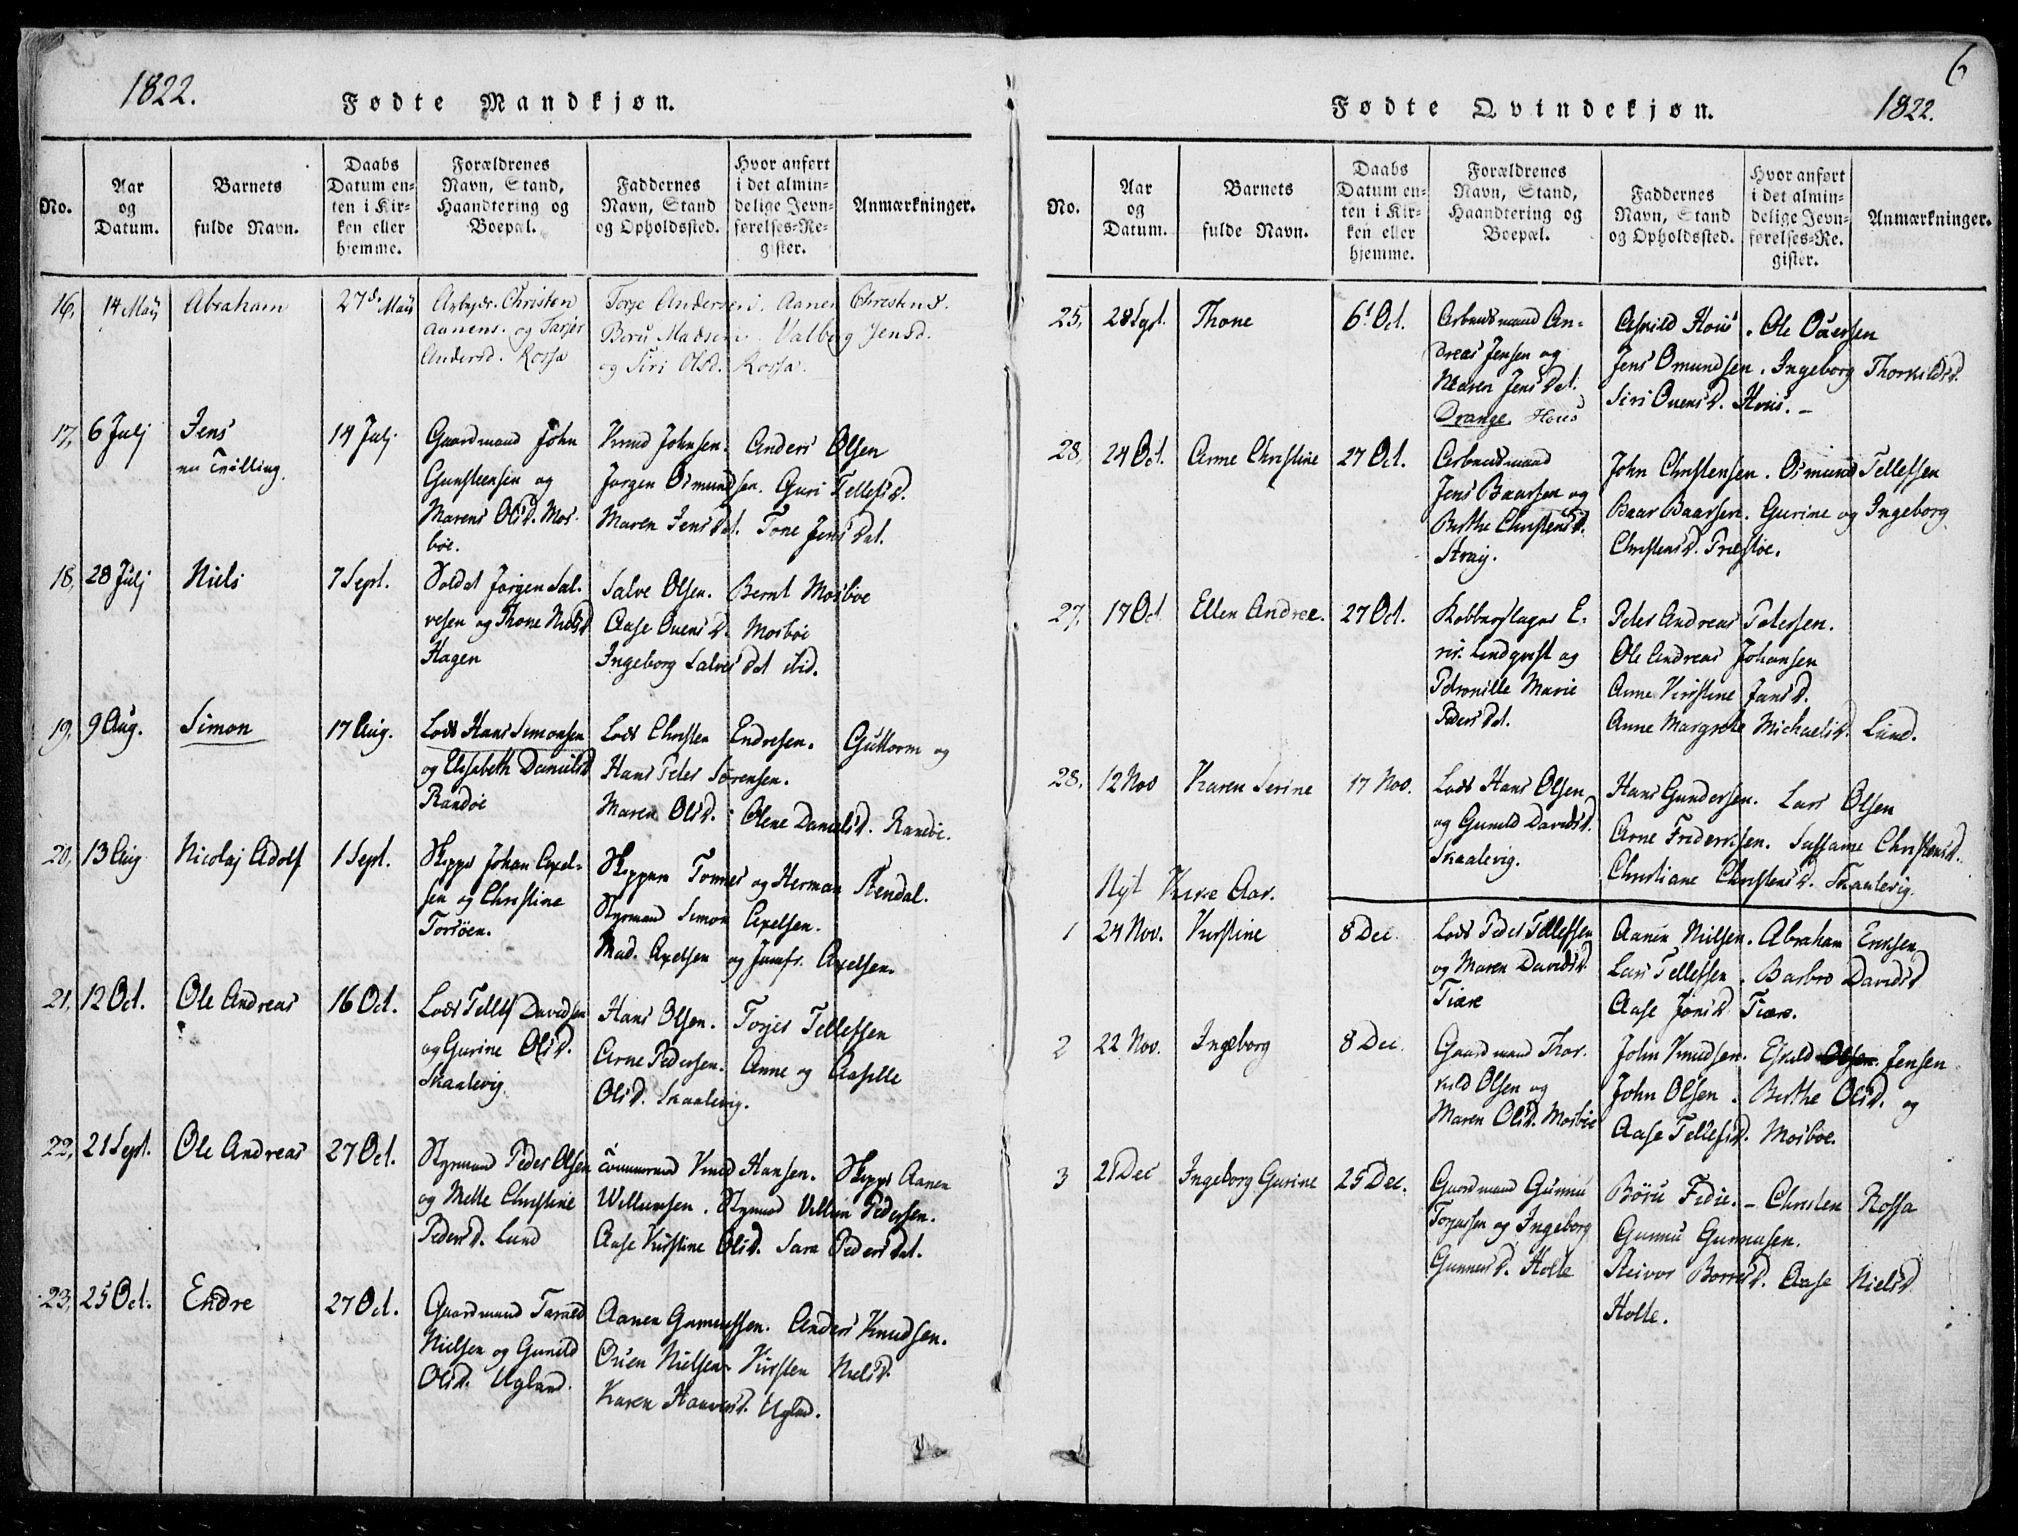 1822.
Fødte Mandkjøn.
No.
Aar
og
Datum.
Barnets
fulde Navn.
Daabs
Datum en-
ten i Kir-
ken eller
hjemme.
Forældrenes
Navn, Stand,
Haandtering og
Boepæl.
Faddernes
Navn, Stand
og Opholdssted.
Hvor anført
i det almin-
delige Jevn-
førelses-Re-
gister.
Anmærkninger.
16, 14 Maij Abraham 27d. Maij
Christen
Aanens. og
Andersd. Rossa
Torje Andersen. Aanen Christens.
Beru Madsen. Valborg Jensd.
og Siri Olsd. Rossa.
17, 6 Julj Jens 14 Julj
en Trilling.
Gaardmand John
Gunsteensen og
Marens Olsd. Mos-
böe.
Knud Johnsen. Anders Olsen
Jorgen Osmundsen. Guri Tellefsd.
Maren Jens Dat. Tone Jens Dat.
18, 28 Julj Niels 7 Sept.
Soldat Jorgen Sal-
vesen og Thone Nielsd
Hagen
Salve Olsen. Bernt Mosböe
Aase Ouens D. Mosböe
Ingeborg Salves Dat ibid.
19, 9 Aug. Simon 17 Aug.
Lods Hans Simonsen
og Elisabeth Daniels D
Randöe
Lods Christen Endresen. Guttorm og
Hans Peter Sörensen.
Maren Olsd. Olene Danielsd. Randöe.
20, 13 Aug Nicolaj Adolf 1 Sept.
Skipp. Johan Axel-
sen og Christine
Torsöen.
Skippern Tonnes og Herman Stendal.
Styrmand Simon Axelsen.
Mad. Axelsen og Jomfr. Axelsen.
21, 12 Oct. Ole Andreas 16 Oct.
Lods Tellef Davidsen
og Gurine Olsd.
Skaalevig.
Hans Olsen. Torjer Tellefsen
Arne Pedersen. Anne og Aaselle
Olsd. Skaalevig.
22, 21 Sept. Ole Andreas 27 Oct.
Styrmand Peder Olsen
og Mette Christine
Pedersd. Lund
Knud Hansen. Skipp. Aanen
Willumsen. Styrmand Pedersen.
Aase Kirstine Olsd. Sara Peders Dat.
23, 25 Oct. Endre 27 Oct.
Gaardmand Tarald
Nielsen og Gunild
Olsd. Ugland.
Aanen Gunnufsen. Anders Knudsen.
Ouen Nielsen. Kirsten Nielsd.
Karen Haavorsd. Uglad.
6
1822.
Fødte Qvindekjøn.
No.
Aar
og
Datum.
Barnets
fulde Navn.
Daabs
Datum en-
ten i Kir-
ken eller
hjemme.
Forældrenes
Navn, Stand,
Haandtering og
Boepæl.
Faddernes
Navn, Stand
og Opholdssted.
Hvor anført
i det almin-
delige Jevn-
førelses-Re-
gister.
Anmærkninger.
25, 28 Sept. Thone 6t Oct.
Arbeidsmand An-
dreas Jensen og
Maren Jens Dat.
Drange Hous
Askild Hous. Ole Ouersen
Jens Omundsen. Ingeborg Thorkildsd.
Siri Ouens D. Hous.
28, 24 Oct. Anne Christine 27 Oct.
Arbeidsmand
Jens Baarsen og
Berthe Christens D.
Straij.
John Christensen. Osmund Tellefsen
Baar Baarsen. Gurine og Ingeborg
Christens D. Præstöe.
27, 17 Oct Ellen Andrea. 27 Oct.
Kobberslager E-
ric. Lindqvist og
Petronille Marie
Peders Dat.
Peter Andreas Petersen.
Ole Andreas Johansen
Anne Kirstine Jans D.
Anne Margrete Michaelsd. Lund.
28, 12 Nov Karen Serine 17 Nov.
Lods Hans Olsen
og Gunild Davidsd.
Skaalevig.
Hans Gundersen. Lars Olsen
Arne Frideriksen. Sussanne Christensd.
Christiane Christens D. Skaalevig.
Nyt Kirke Aar.
1 24 Nov. Kirstine 8 Dec.
Lods Peder Tellefsen
og Maren Davids D.
Tiære
Aanen Nielsen. Abraham Ericsen,
Lars Tellefsen. Barbro Davidsd
Aase Jons D. Tiære.
2 22 Nov. Ingeborg 8 Dec.
Gaardmand Thor-
kild Olsen og
Maren Olsd. Mosböe
John Knudsen. Eskild Olsen Jensen
John Olsen. Berthe Olsd. og
Aase Tellefsd. Mosböe.
3 21 Dec Ingeborg Gurine 25 Dec.
Gaardmand Gunnu
Torjussen og Ingeborg
Gunnus D. Holte
Böru Fidie. - Christen Rossa
Gunnu Gunnusen.
Reivor Borresd. Aase Nielsd
Holte.